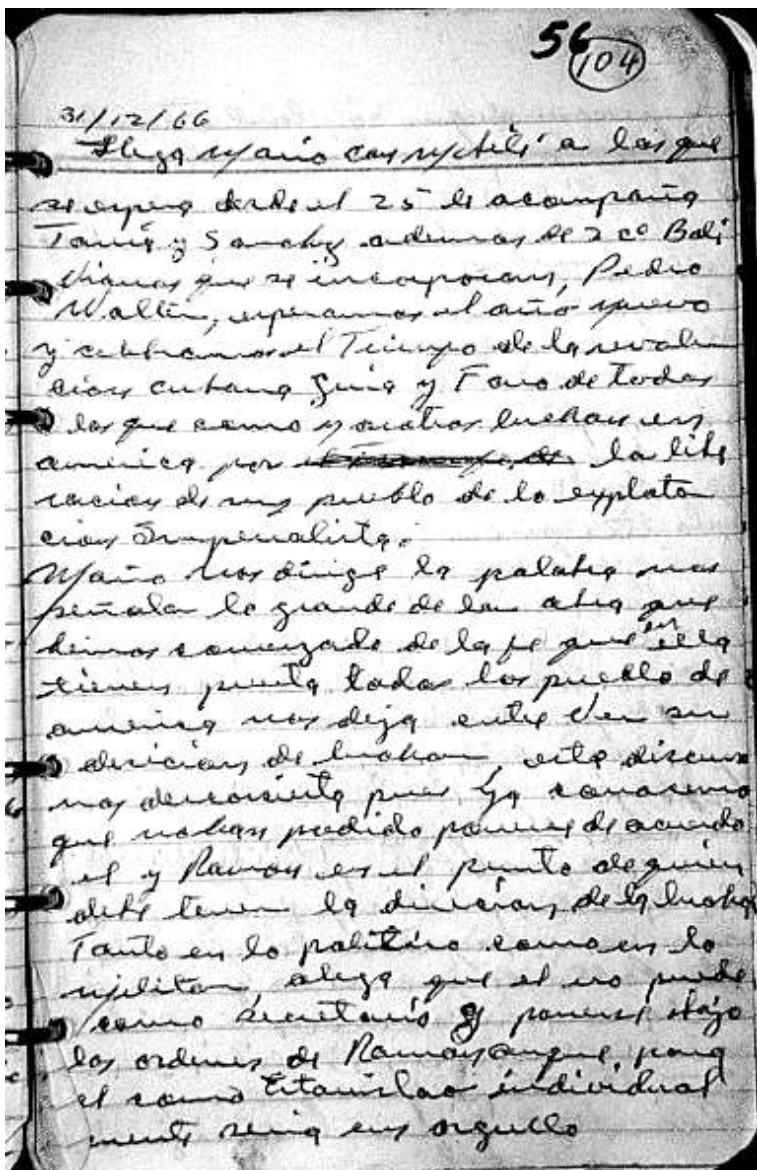 56
104
31/12/66
Llega Mario con Mbili a los que
se espera desde el 25 le acompaña
Tania y Sanchez ademas de 2 cº Boli
vianos que se incorporan, Pedro
Walter, esperamos el año nuevo
y celebramos el Triunfo de la revolu
cion cubana Guia y Faro de todos
los que como nosotros luchan en
america por la libe
racion de sus pueblo de la explota
cion Imperialista.
Mario nos dirige la palabra nos
señala lo grande de la obra que
hemos comenzado de la fe que en ella
tienen puesta todos los pueblo de
america nos deja entre ver su
decicion de luchar, este discurso
nos desconcierta pues ya conocemo
que no han podido ponerse de acuerdo
el y Ramon en el punto de quien
debe tener la direccion de la lucha
Tanto en lo politico como en lo
militar, alega que el no puede
como secretario ponerse bajo
las ordenes de Ramon aunque para
el como Estanislao individual
mente seria un orgullo